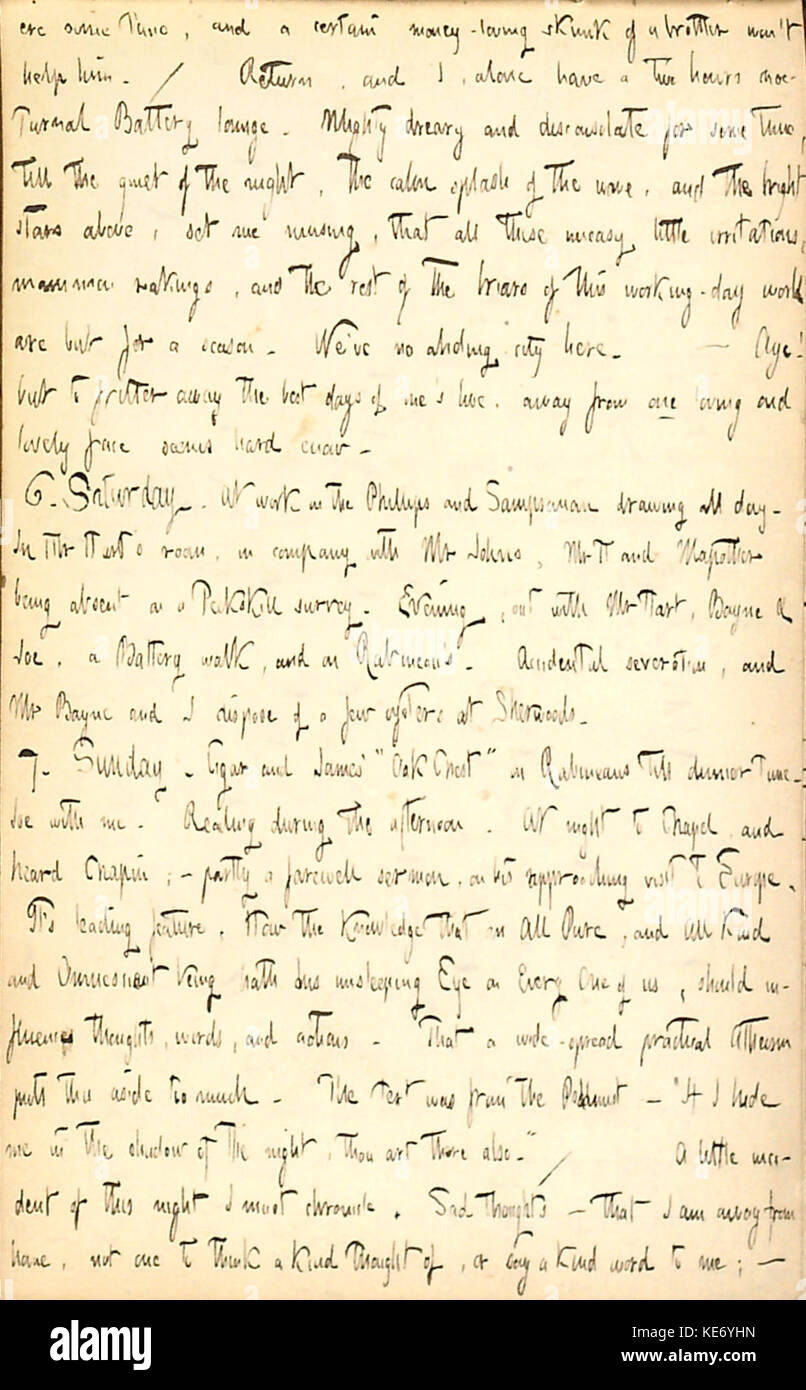 ere some time, and a certain money-loving skunk of a brother won't
help him. / Return, and I, alone have a two hours noc-
turnal Battery lounge. Mighty dreary and disconsolate for some time,
till the quiet of the night, the calm splash of the wave, and the bright
stars above, set me musing, that all these uneasy little irritations,
mammon rakings, and the rest of the briars of this working-day world
are but for a season. We've no abiding city here. — Aye!
but to fritter away the best days of one's live, away from one loving and
lovely face seems hard enow.
6. Saturday. At work on the Phillips and Sampsonian drawing all day.
In Mr Hart's room, in company with Mr Johns, Mr H and Mapother
being absent on a Peekskill survey. Evening, out with Mr Hart, Bayne &
Joe, a Battery walk, and on Rabineau's. Accidental severation, and
Mr Bayne and I dispose of a few oysters at Sherwoods.
7. Sunday. Cigar and James' "Oak Chest" in Rabineaus till dinner time.
Joe with me. Reading during the afternoon. At night to Chapel and
heard Chapin; — partly a farewell sermon, on his approaching visit to Europe.
It's leading feature, How the Knowledge that an All Pure, and All Kind
and Omniscient being hath his unsleeping Eye on Every One of us, should in-
fluence thoughts, words, and actions. That a wide-spread practical Atheism
puts this aside too much. The text was from the Psalmist — "If I hide
me in the shadow of the night, thou art there also." / A little inci-
dent of this night I must chronicle. Sad thoughts — that I am away from
home, not one to think a kind thought of, or say a kind word to me; —
alamy
Image ID: KE6YHN
www.alamy.com